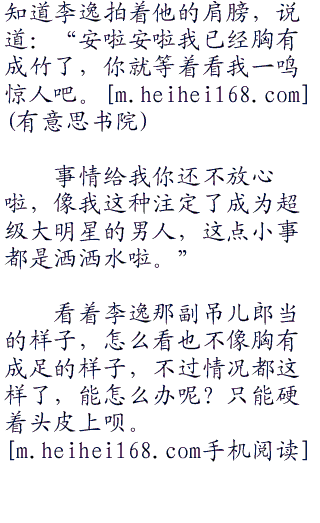 知道李逸拍着他的肩膀，说
道：“安啦安啦我已经胸有
成竹了，你就等着看我一鸣
惊人吧。[m.heihei168.com]
(有意思书院)
事情给我你还不放心
啦，像我这种注定了成为超
级大明星的男人，这点小事
都是洒洒水啦。”
看着李逸那副吊儿郎当
的样子，怎么看也不像胸有
成足的样子，不过情况都这
样了，能怎么办呢？只能硬
着头皮上呗。
[m.heihei168.com手机阅读]